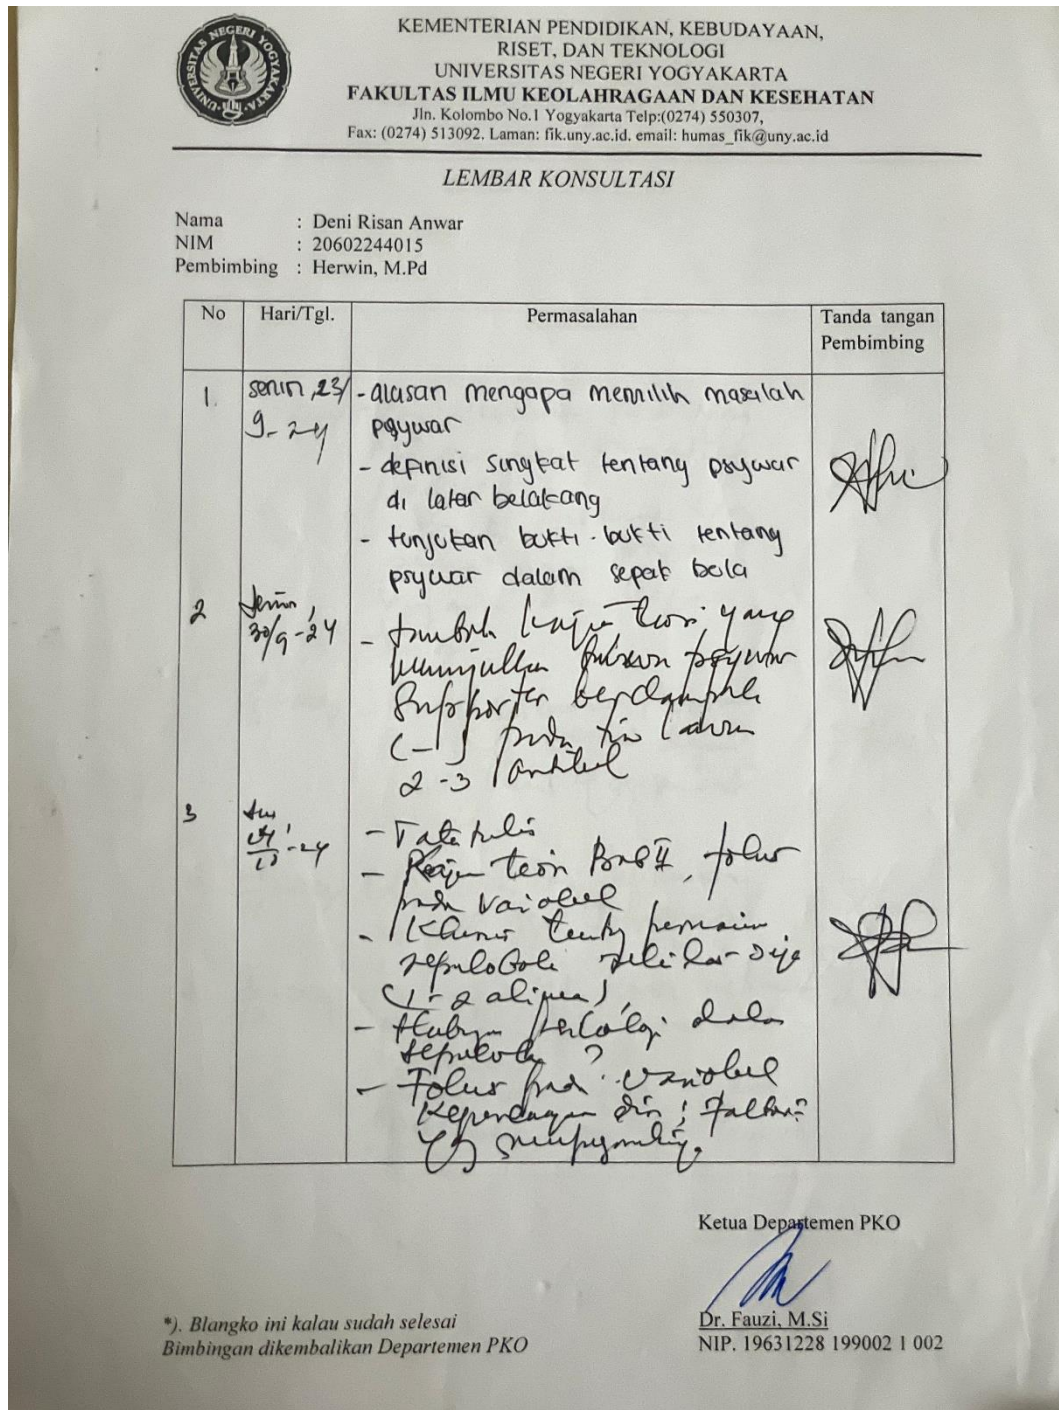 UNIVERSITAS NEGERI YOGYAKARTA
KEMENTERIAN PENDIDIKAN, KEBUDAYAAN,
RISET, DAN TEKNOLOGI
UNIVERSITAS NEGERI YOGYAKARTA
FAKULTAS ILMU KEOLAHRAGAAN DAN KESEHATAN
Jln. Kolombo No.1 Yogyakarta Telp:(0274) 550307,
Fax: (0274) 513092. Laman: fik.uny.ac.id. email: humas_fik@uny.ac.id
LEMBAR KONSULTASI
Nama : Deni Risan Anwar
NIM : 20602244015
Pembimbing : Herwin, M.Pd
No Hari/Tgl. Permasalahan Tanda tangan
Pembimbing
1. senin, 23/ - alasan mengapa memilih masalah
9-24 psywar
- definisi singkat tentang psywar
di latar belakang
- tunjukan bukti-bukti tentang
psywar dalam sepak bola
2 Senin,
30/9-24 - tambah kajian teori yang
menunjukkan psywar
supporter berdampak
(-) pada tim lawan
2-3 artikel
3
- Tata tulis
- Kajian teori Bab II, fokus
pada variabel
- tentang pemain
sepakbola
(1-2 alinea)
- psikologi dalam
sepakbola ?
- Fokus pada variabel
Kepercayaan diri
yg
Ketua Departemen PKO
Dr. Fauzi, M.Si
NIP. 19631228 199002 1 002
*). Blangko ini kalau sudah selesai
Bimbingan dikembalikan Departemen PKO